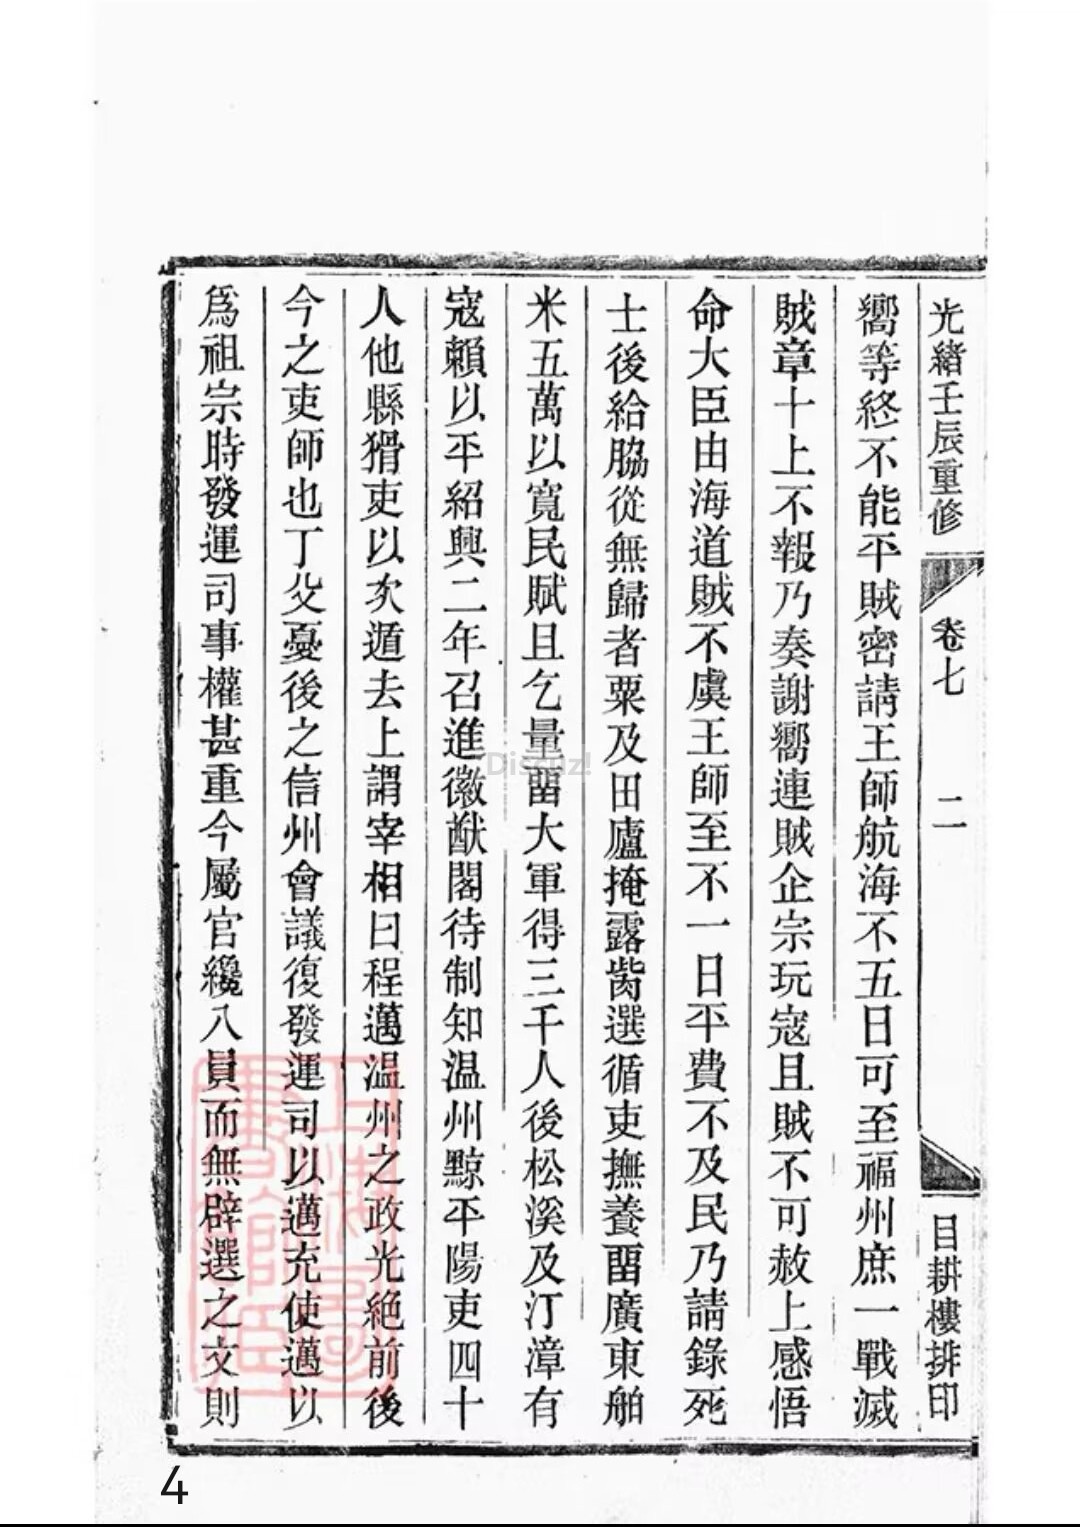 光緒壬辰重修
卷七
二
目耕樓排印
嚮等終不能平賊密請王師航海不五日可至福州庶一戰滅
賊章十上不報乃奏謝嚮連賊企宗玩寇且賊不可赦上感悟
命大臣由海道賊不虞王師至不一日平費不及民乃請錄死
士後給脇從無歸者粟及田廬掩露胔選循吏撫養畱廣東舶
米五萬以寬民賦且乞量畱大軍得三千人後松溪及汀漳有
寇賴以平紹興二年召進徽猷閣待制知温州黥平陽吏四十
人他縣猾吏以次遁去上謂宰相曰程邁温州之政光絕前後
今之吏師也丁父憂後之信州會議復發運司以邁充使邁以
爲祖宗時發運司事權甚重今屬官纔八員而無辟選之文則
Discuz!
4